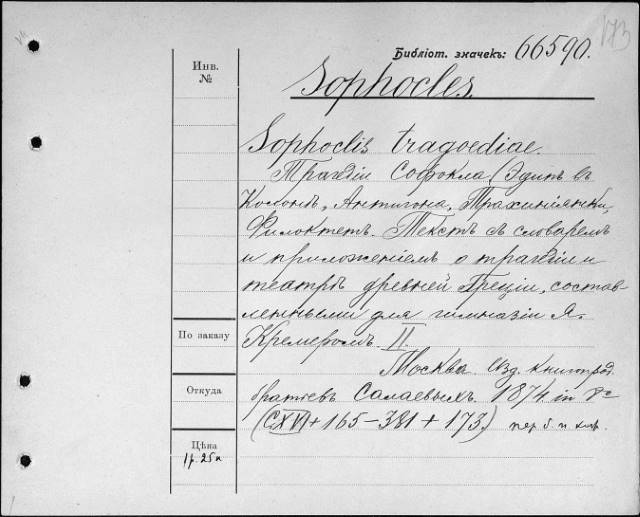 173
Библіот. значекъ: 66590.
Инв.
№
Sophocles.
Sophoclis tragoediae.
Трагедіи Софокла (Эдипъ въ
Колонѣ, Антигона, Трахинянки,
Филоктетъ. Текстъ съ словаремъ
и приложеніемъ о трагедіи и
театрѣ древней Греціи, состав-
ленными для гимназіи Я.
Кремеромъ. II.
Москва. Изд. книгопрод.
братьевъ Салаевыхъ. 1874. in 8º
(CXVI + 165–381 + 173.)
По заказу
Откуда
Цѣна
1 р. 25 к